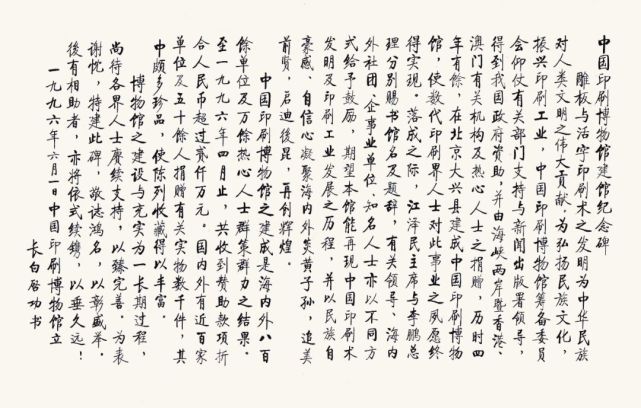 中国印刷博物馆建馆纪念碑
雕板与活字印刷术之发明为中华民族
对人类文明之伟大贡献。为弘扬民族文化，
振兴印刷工业，中国印刷博物馆筹备委员
会仰仗有关部门支持与新闻出版署领导，
得到我国政府资助，并由海峡两岸暨香港、
澳门有关机构及热心人士之捐赠，历时四
年有餘，在北京大兴县建成中国印刷博物
馆，使数代印刷界人士对此事业之夙愿终
得实现。落成之际，江泽民主席与李鹏总
理分别赐书馆名及题辞，有关领导、海内
外社团、企事业单位、知名人士亦以不同方
式给予鼓励，期望本馆能再现中国印刷术
发明及印刷工业发展之历程，并以民族自
豪感、自信心凝聚海内外炎黄子孙，追美
前贤，启迪後昆，再创辉煌。
中国印刷博物馆之建成是海内外八百
餘单位及万餘热心人士群策群力之结果。
至一九九六年四月止，共收到赞助款项折
合人民币超过叁仟万元。国内外有近百家
单位及五十餘人捐赠有关实物数千件，其
中颇多珍品，使陈列收藏得以丰富。
博物馆之建设与充实为一长期过程，
尚待各界人士赓续支持，以臻完善。为表
谢忱，特建此碑，敬誌鸿名，以彰盛举。
後有相助者，亦将依式续镌，以垂久远！
一九九六年六月一日中国印刷博物馆立
长白启功书